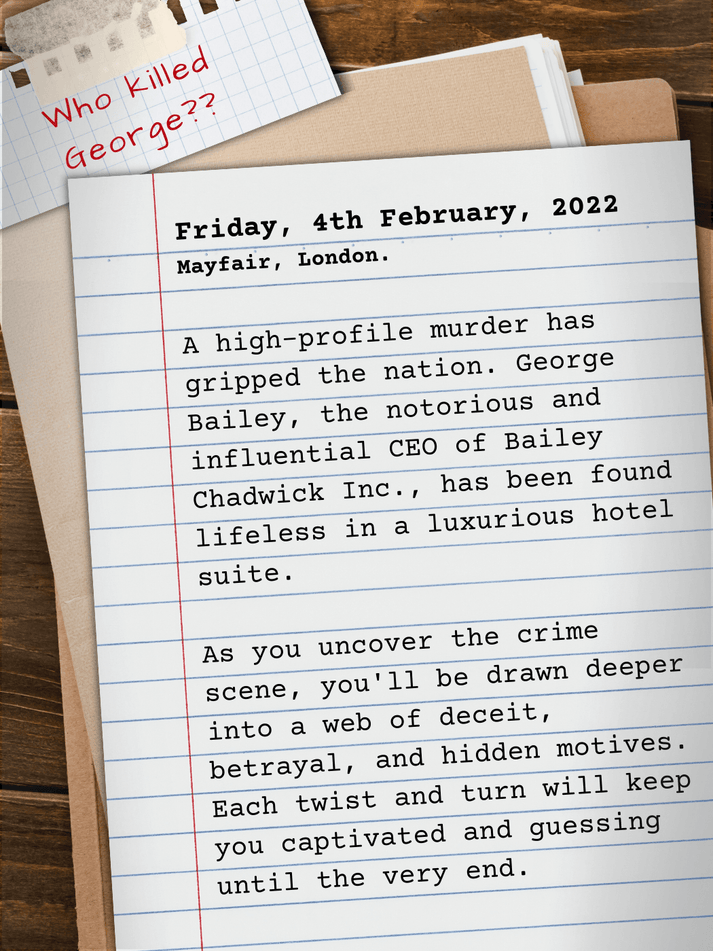 Who killed
George??
Friday, 4th February, 2022
Mayfair, London.
A high-profile murder has
gripped the nation. George
Bailey, the notorious and
influential CEO of Bailey
Chadwick Inc., has been found
lifeless in a luxurious hotel
suite.
As you uncover the crime
scene, you'll be drawn deeper
into a web of deceit,
betrayal, and hidden motives.
Each twist and turn will keep
you captivated and guessing
until the very end.